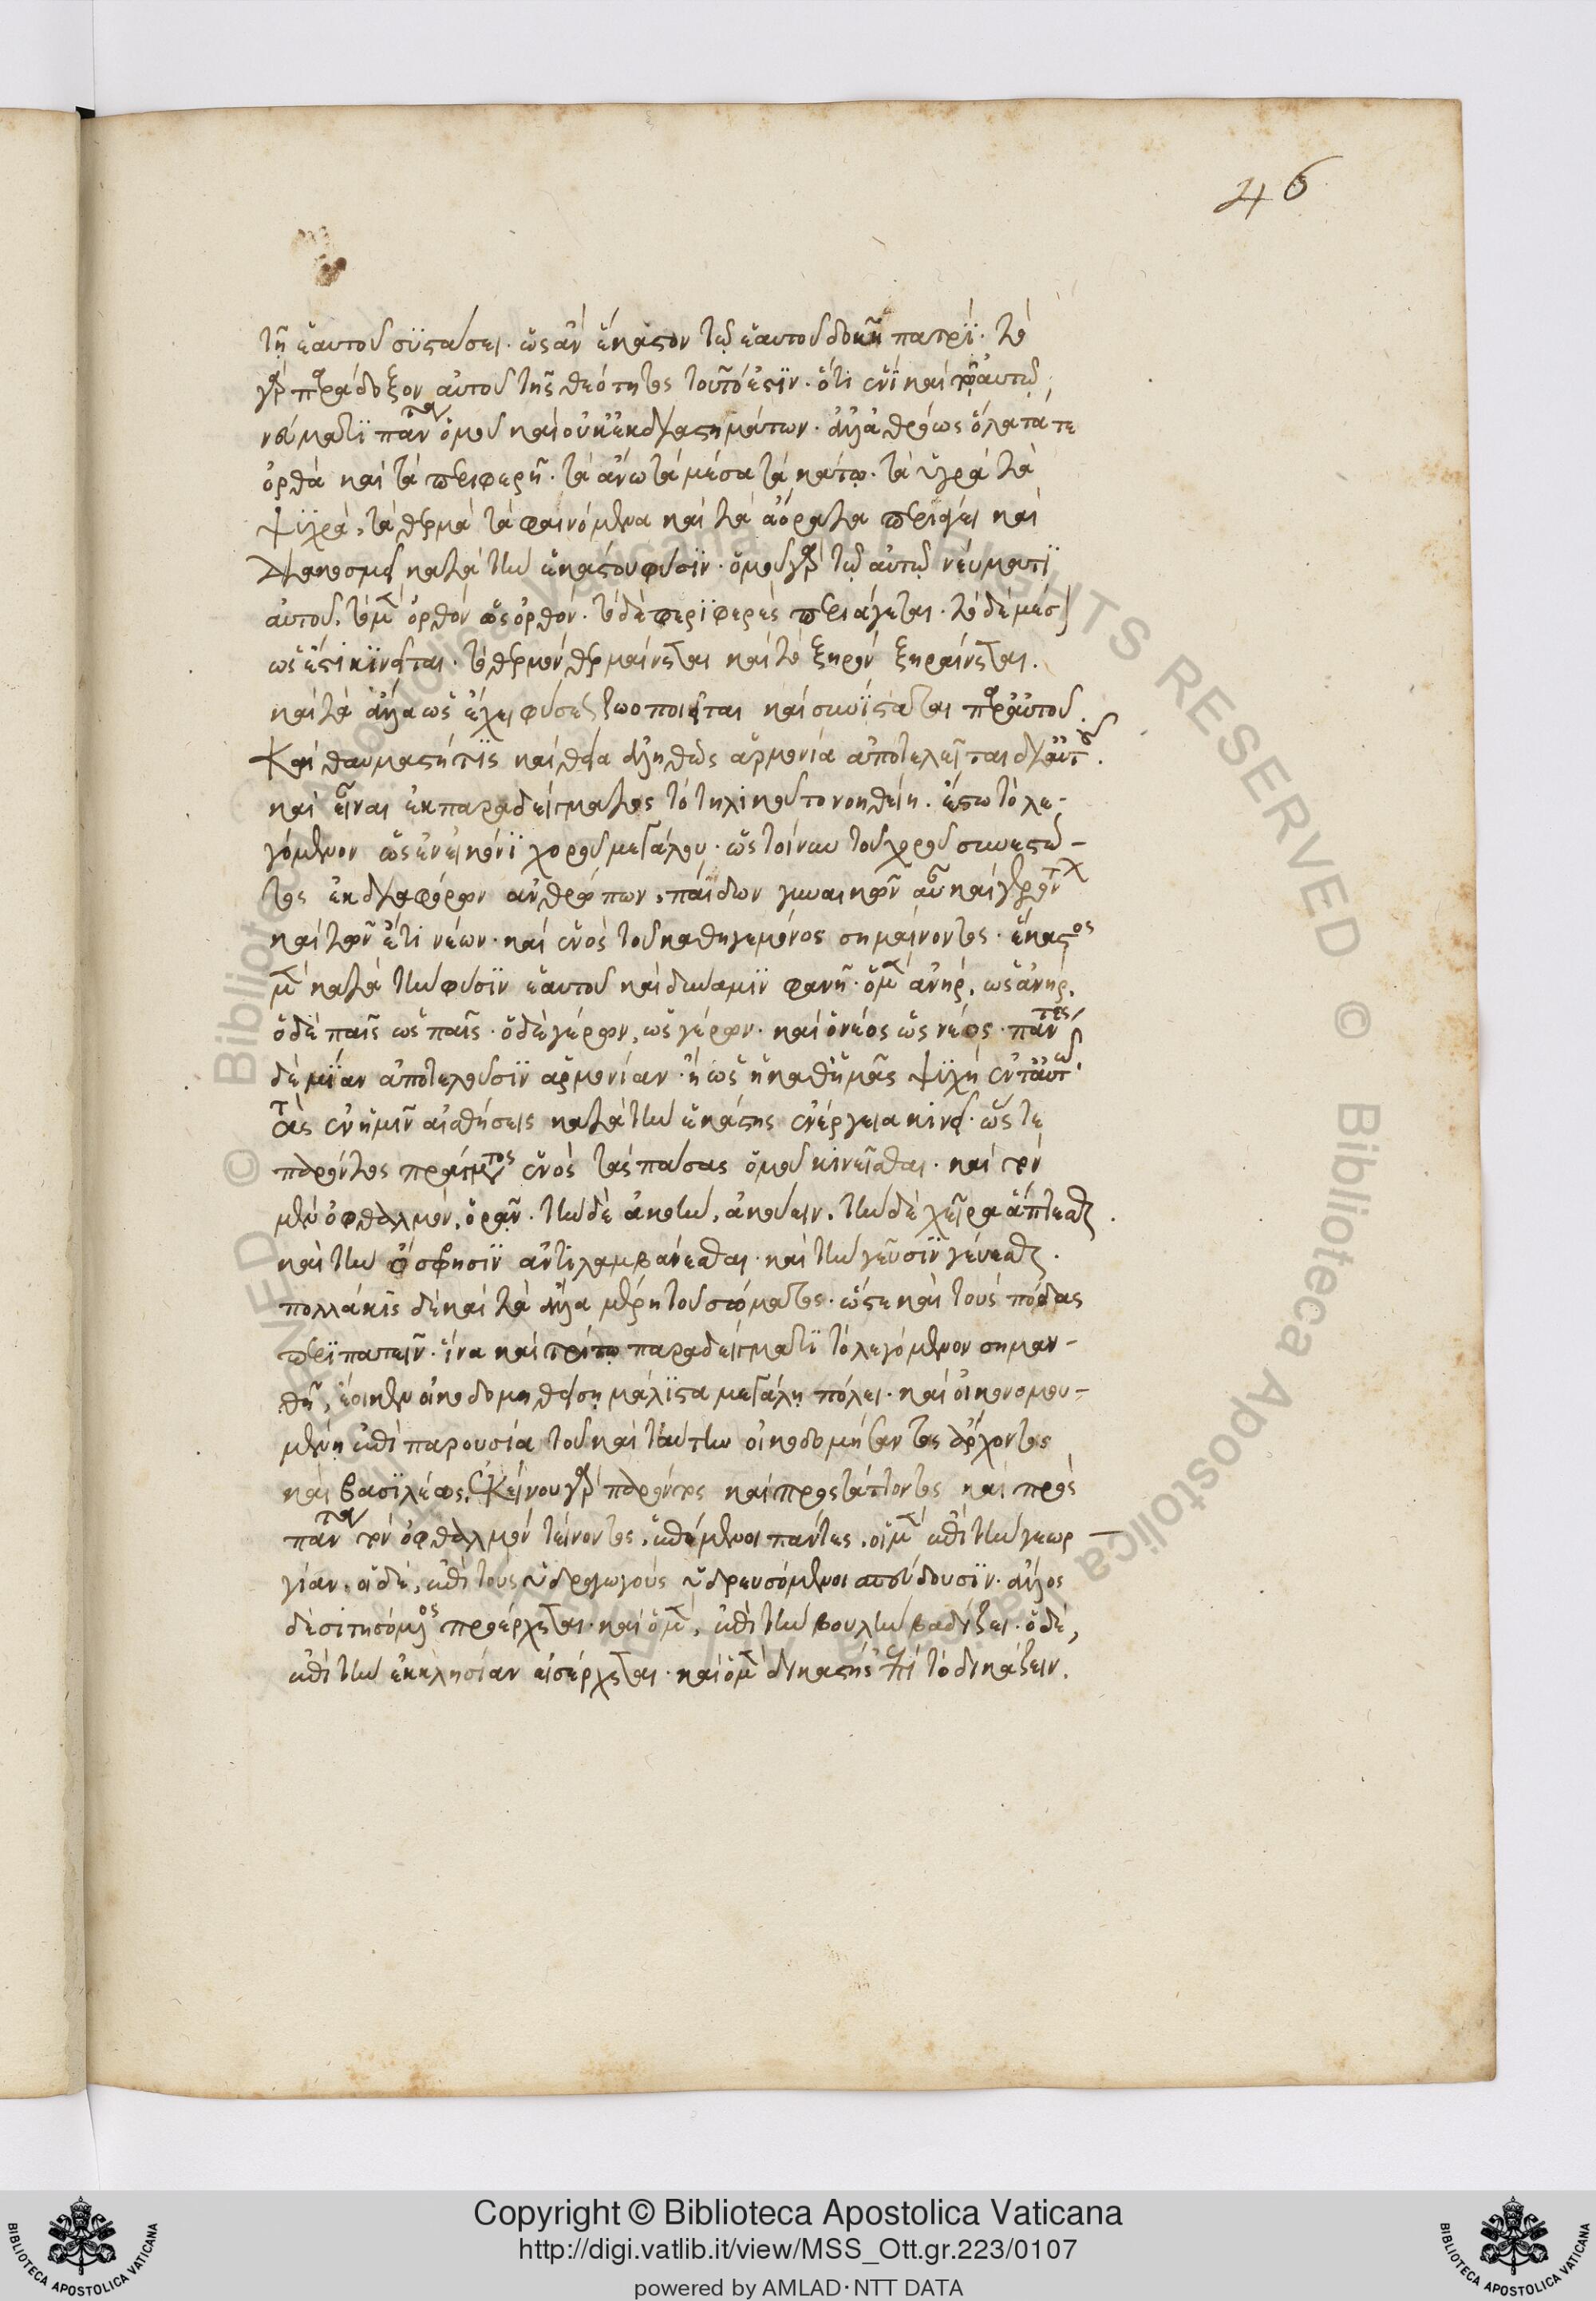 46
τῇ ἑαυτοῦ συστάσει. ὡς ἂν ἕκαστον τῷ ἑαυτοῦ δοκῇ πατρί. τὸ
γὰρ παράδοξον αὐτοῦ τῆς θεότητος τοῦτό ἐστιν. ὅτι ἑνὶ καὶ τῷ αὐτῷ
νεύματι πάντα ὁμοῦ καὶ οὐκ ἐκ διαστημάτων. ἀλλ' ἀθρόως ὅλα τά τε
ὀρθὰ καὶ τὰ περιφερῆ. τὰ ἄνω τὰ μέσα τὰ κάτω. τὰ ὑγρὰ τὰ
ψυχρὰ, τὰ θερμὰ τὰ φαινόμενα καὶ τὰ ἀόρατα περιστρέφει καὶ
διακοσμεῖ κατὰ τὴν ἑκάστου φύσιν. ὁμοῦ γὰρ τῷ αὐτῷ νεύματι
αὐτοῦ, τὸ μὲν ὀρθὸν ὡς ὀρθόν. τὸ δὲ περιφερὲς περιάγεται. τὸ δὲ μέσον
ὡς ἔστι κινεῖται. τὸ θερμὸν θερμαίνεται καὶ τὸ ξηρὸν ξηραίνεται.
καὶ τὰ ἄλλα ὡς ἔχει φύσεως ζωοποιεῖται καὶ συνίσταται παρ' αὐτοῦ.
Καὶ θαυμαστή τις καὶ θεία ἀληθῶς ἁρμονία ἀποτελεῖται δι' αὐτοῦ.
καὶ εἵναι ἐκ παραδείγματος τὸ τηλικοῦτο νοηθείη. ἔστω τὸ λε-
γόμενον ὡς ἐν εἰκόνι χοροῦ μεγάλου. ὡς τοίνυν τοῦ χοροῦ συνεστῶ-
τος ἐκ διαφόρων ἀνθρώπων, παίδων γυναικῶν αὖ καὶ γερόντων
καὶ τῶν ἔτι νέων. καὶ ἑνὸς τοῦ καθηγεμόνος σημαίνοντος. ἕκαστος
μὲν κατὰ τὴν φύσιν ἑαυτοῦ καὶ δύναμιν φωνῇ. ὁ μὲν ἀνὴρ, ὡς ἀνήρ.
ὁ δὲ παῖς ὡς παῖς. ὁ δὲ γέρων, ὡς γέρων. καὶ ὁ νέος ὡς νέος. πάντες
δὲ μίαν ἀποτελοῦσιν ἁρμονίαν. ἢ ὡς ἡ καθ' ἡμᾶς ψυχὴ ἐν ταυτῷ
τὰς ἐν ἡμῖν αἰσθήσεις κατὰ τὴν ἑκάστης ἐνέργεια κινεῖ. ὥστε
παρόντος πράγματος ἑνὸς τὰς πάσας ὁμοῦ κινεῖσθαι. καὶ τὸν
μὲν ὀφθαλμόν, ὁρᾷν. τὴν δὲ ἀκοὴν, ἀκούειν. τὴν δὲ χεῖρα ἅπτεσθαι.
καὶ τὴν ὄσφρησιν ἀντιλαμβάνεσθαι. καὶ τὴν γεῦσιν γεύεσθαι.
πολλάκις δὲ καὶ τὰ ἄλλα μέρη τοῦ στόματος. ὥστε καὶ τοὺς πόδας
περιπατεῖν. ἵνα καὶ τρίτῳ παραδείγματι τὸ λεγόμενον σημαν-
θῇ, ἔοικεν οἰκοδομηθείσῃ μάλιστα μεγάλῃ πόλει. καὶ οἰκονομου-
μένῃ ἐπὶ παρουσίᾳ τοῦ καὶ ταύτην οἰκοδομήσαντος ἄρχοντος
καὶ βασιλέως. Ἐκείνου γὰρ παρόντος καὶ προστάττοντος καὶ πρὸς
πάντα τὸν ὀφθαλμὸν τείνοντος, ἑπόμενοι πάντες, οἱ μὲν ἐπὶ τὴν γεωρ
γίαν. οἱ δὲ, ἐπὶ τοὺς ὑδραγωγοὺς ὑδρευσόμενοι σπεύδουσιν. ἄλλος
δὲ σιτησόμενος προέρχεται. καὶ ὁ μὲν, ἐπὶ τὴν βουλὴν βαδίζει. ὁ δὲ,
ἐπὶ τὴν ἐκκλησίαν εἰσέρχεται. καὶ ὁ μὲν δικαστὴς ἐπὶ τὸ δικάζειν.
Copyright © Biblioteca Apostolica Vaticana
http://digi.vatlib.it/view/MSS_Ott.gr.223/0107
powered by AMLAD·NTT DATA